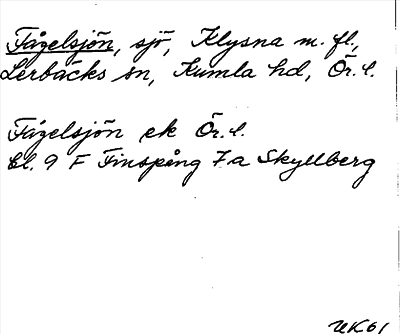 Fågelsjön, sjö, Klysna m. fl.,
Lerbäcks sn, Kumla hd, Ör. l.
Fågelsjön ek Ör. l.
bl. 9 F Finspång 7a Skyllberg
UK 61